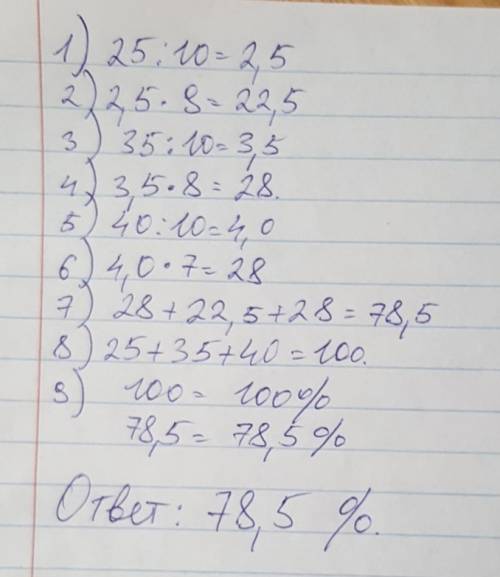 1) 25:10=2,5
2) 2,5·9=22,5
3) 35:10=3,5
4) 3,5·8=28.
5) 40:10=4,0
6) 4,0·7=28
7) 28+22,5+28=78,5
8) 25+35+40=100.
9) 100= 100%
78,5= 78,5%
Ответ: 78,5 %.